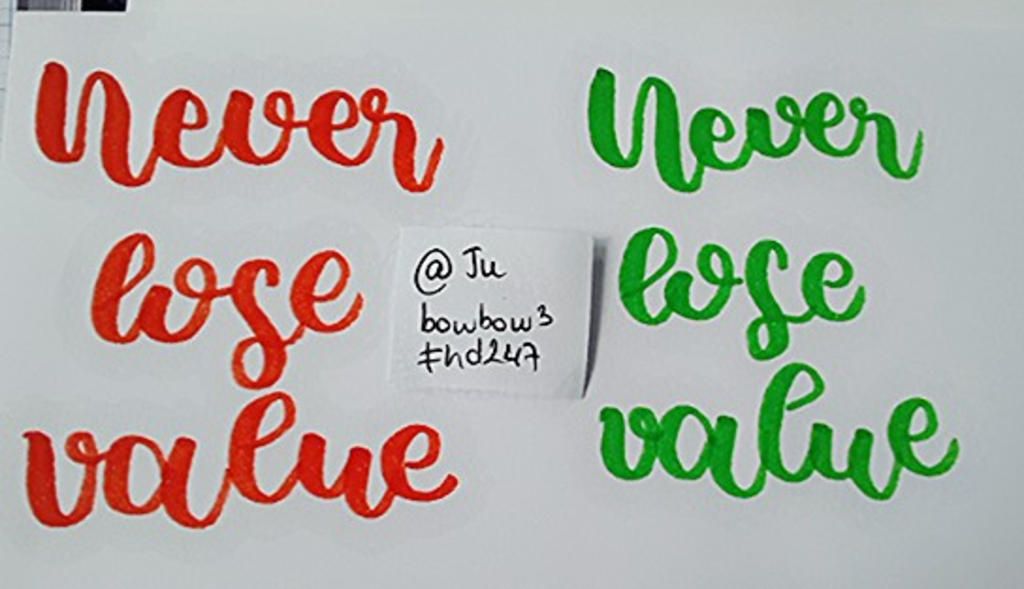 Never
lose
value
@Ju
bowbow3
#hd247
Never
lose
value